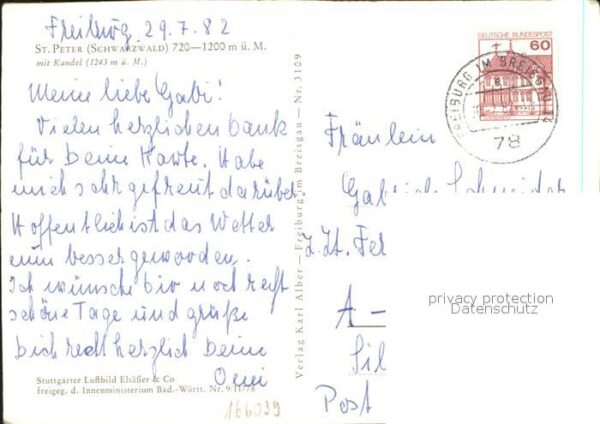 Freiburg, 29.7.82
ST. PETER (SCHWARZWALD) 720–1200 m ü. M.
mit Kandel (1243 m ü. M.)
Meine liebe Gabi!
Vielen herzlichen Dank
für Deine Karte. Habe
mich sehr gefreut darüber.
Hoffentlich ist das Wetter
nun besser geworden.
Ich wünsche Dir noch recht
schöne Tage und grüße
Dich recht herzlich Deine
Omi
Stuttgarter Luftbild Elsäßer & Co
freigeg. d. Innenministerium Bad.-Württ. Nr. 9/11778
166039
Verlag Karl Alber – Freiburg im Breisgau – Nr. 3109
DEUTSCHE BUNDESPOST
60
FREIBURG IM BREISGAU
78
Fräulein
z. Zt. Fer
A –
Sil
Post
privacy protection
Datenschutz